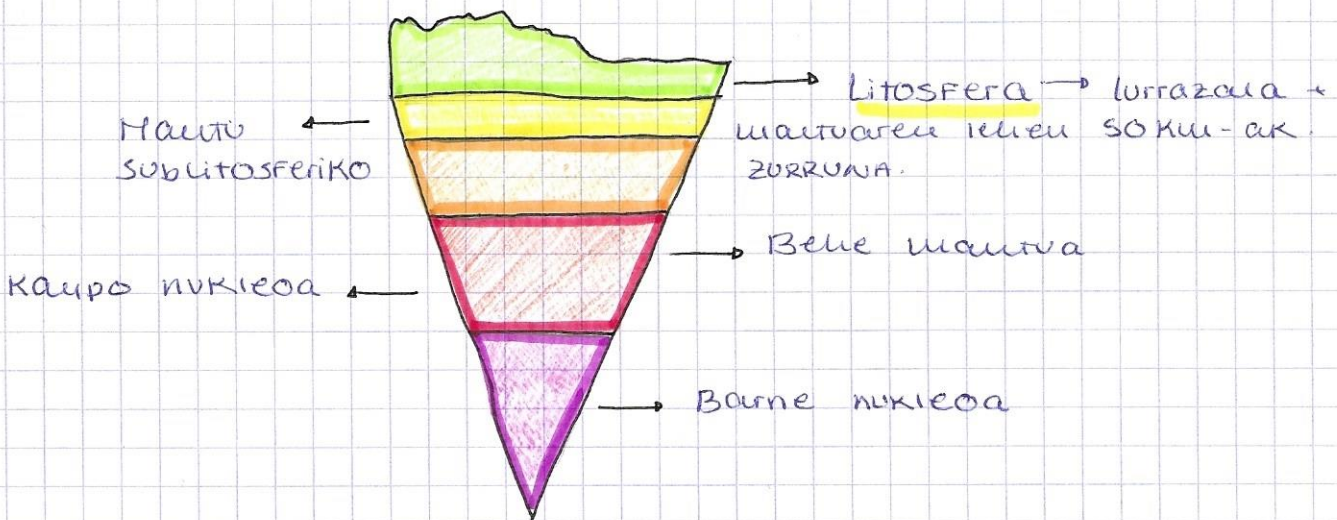 Litosfera → lurrazala +
mantuaren lehen 50 km-ak.
ZURRUNA.
Mantu
sublitosferiko
Behe mantua
Kanpo nukleoa
Barne nukleoa